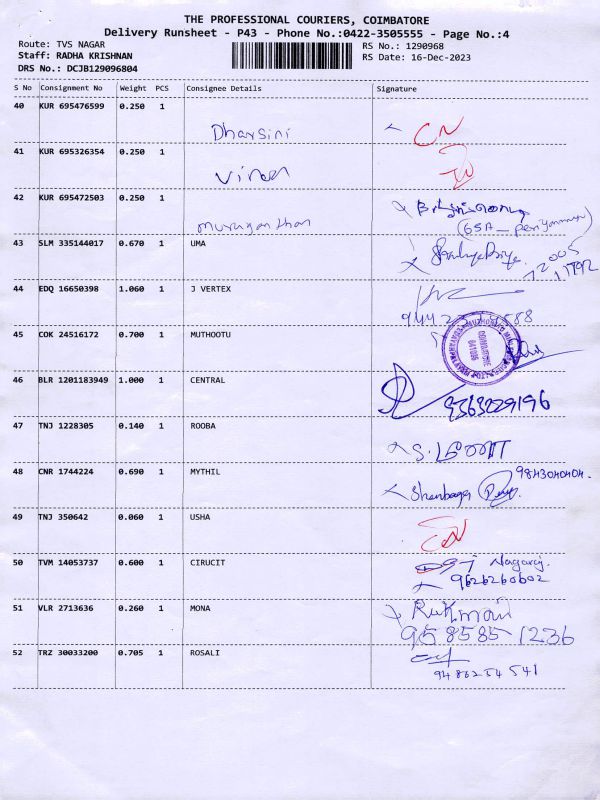 THE PROFESSIONAL COURIERS, COIMBATORE
Delivery Runsheet - P43 - Phone No.:0422-3505555 - Page No.:4
Route: TVS NAGAR
RS No.: 1290968
Staff: RADHA KRISHNAN
RS Date: 16-Dec-2023
DRS No.: DCJB129096804
S No Consignment No Weight PCS Consignee Details Signature
40 KUR 695476599 0.250 1
Dharsini CN
41 KUR 695326354 0.250 1
42 KUR 695472503 0.250 1
Muruganthan
43 SLM 335144017 0.670 1 UMA
44 EDQ 16650398 1.060 1 J VERTEX
45 COK 24516172 0.700 1 MUTHOOTU
46 BLR 1201183949 1.000 1 CENTRAL
9363229196
47 TNJ 1228305 0.140 1 ROOBA
48 CNR 1744224 0.690 1 MYTHIL
9843040404.
Shenbaga
49 TNJ 350642 0.060 1 USHA
50 TVM 14053737 0.600 1 CIRUCIT
Nagaraj.
9626260602
51 VLR 2713636 0.260 1 MONA
Rukmani
958585 1236
52 TRZ 30033200 0.705 1 ROSALI
9486254541